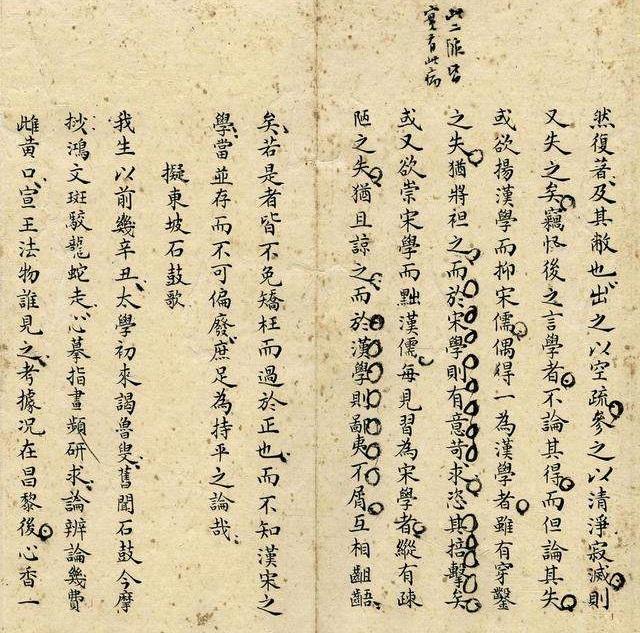 此二段皆
實有此病
然復著及其敝也出之以空疏參之以清淨寂滅則
又失之矣竊怪後之言學者不論其得而但論其失
或欲揚漢學而抑宋儒偶得一為漢學者雖有穿鑿
之失猶將袒之而於宋學則有意苛求恣其掊擊矣
或又欲崇宋學而黜漢儒每見習為宋學者縱有疎
陋之失猶且諒之而於漢學則鄙夷不屑互相齟齬
矣若是者皆不免矯枉而過於正也而不知漢宋之
學當並存而不可偏廢庶足為持平之論哉
擬東坡石鼓歌
我生以前幾辛丑太學初來謁魯叟舊聞石鼓今摩
抄鴻文斑駁龍蛇走心摹指畫頻研求論辨論幾費
雌黃口宣王法物誰見之考據況在昌黎後心香一